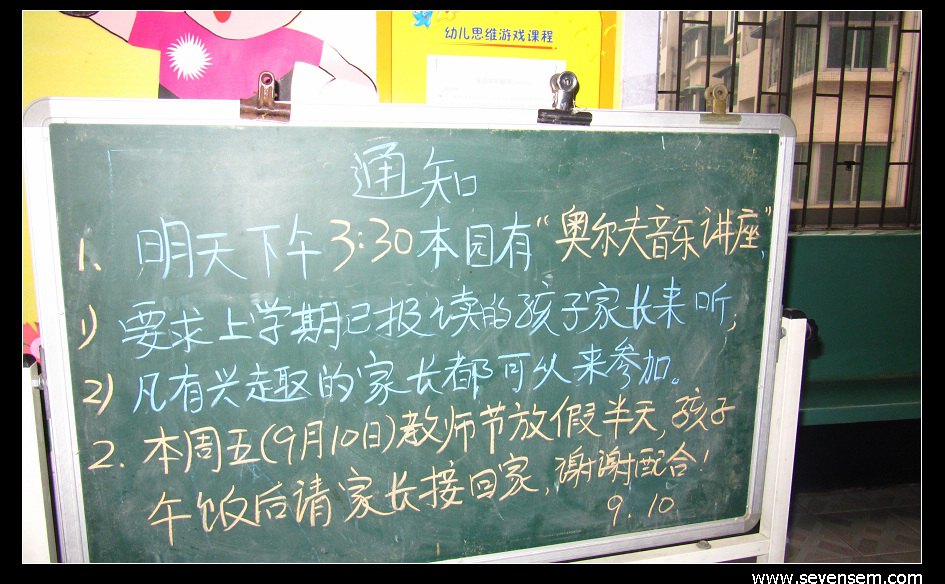 幼儿思维游戏课程
通知
1. 明天下午3:30本园有“奥尔夫音乐讲座”,
1) 要求上学期已报读的孩子家长来听,
2) 凡有兴趣的家长都可从来参加。
2. 本周五(9月10日)教师节放假半天,孩子
午饭后请家长接回家,谢谢配合!
9.10
www.sevensem.com